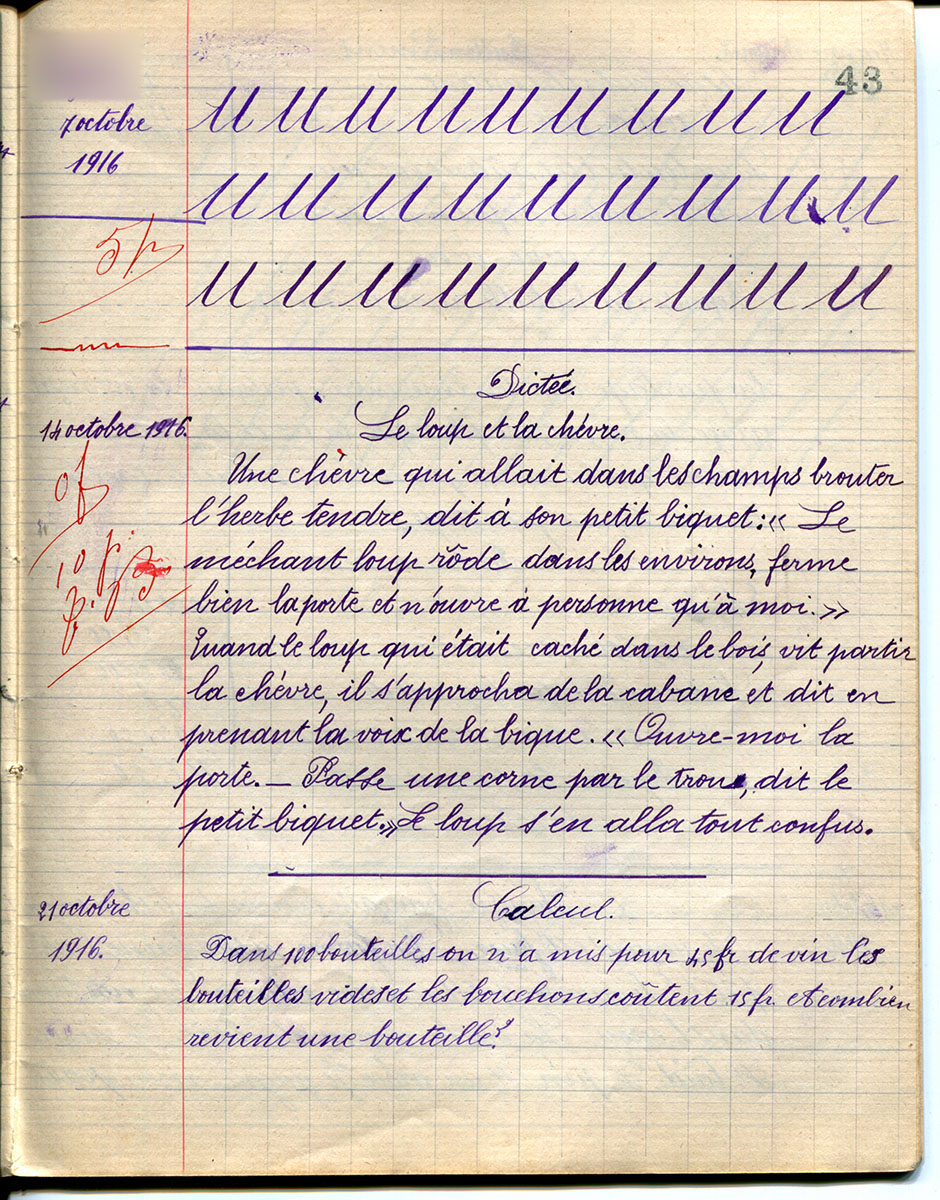 43
7 octobre
1916
u u u u u u u u u
u u u u u u u u u
u u u u u u u u u
Dictée.
14 octobre 1916.
Le loup et la chèvre.
Une chèvre qui allait dans les champs brouter
l'herbe tendre, dit à son petit biquet : « Le
méchant loup rôde dans les environs, ferme
bien la porte et n'ouvre à personne qu'à moi. »
Quand le loup qui était caché dans le bois, vit partir
la chèvre, il s'approcha de la cabane et dit en
prenant la voix de la bique. « Ouvre-moi la
porte. — Passe une corne par le trou, dit le
petit biquet.» Le loup s'en alla tout confus.
0f
10 p.
Calcul.
21 octobre
1916.
Dans 100 bouteilles on n'a mis pour 45 fr de vin les
bouteilles vides et les bouchons coûtent 15 fr. A combien
revient une bouteille?